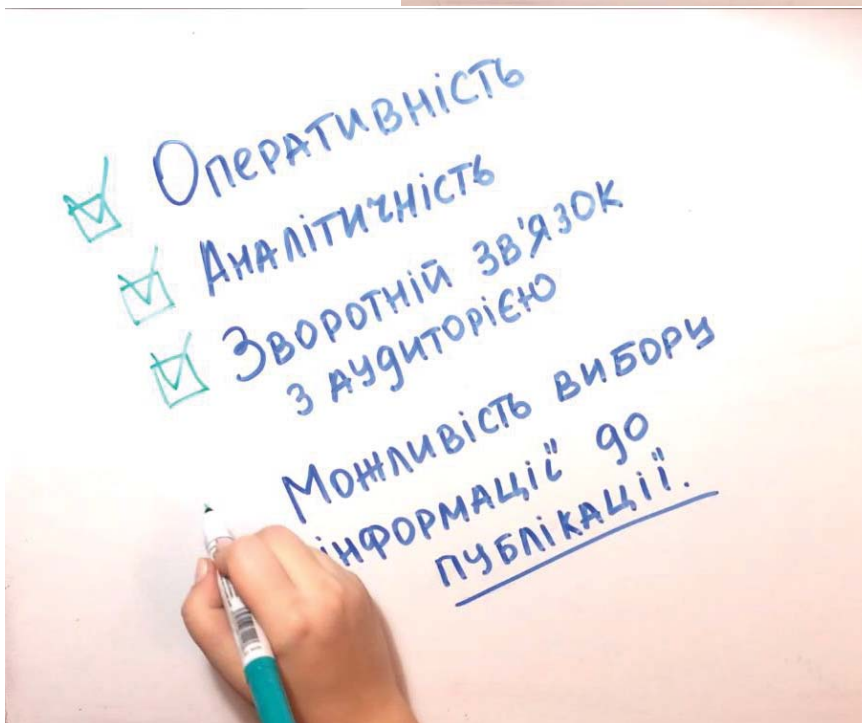 Оперативність
Аналітичність
Зворотній зв'язок
з аудиторією
Можливість вибору
інформації до
публікації.